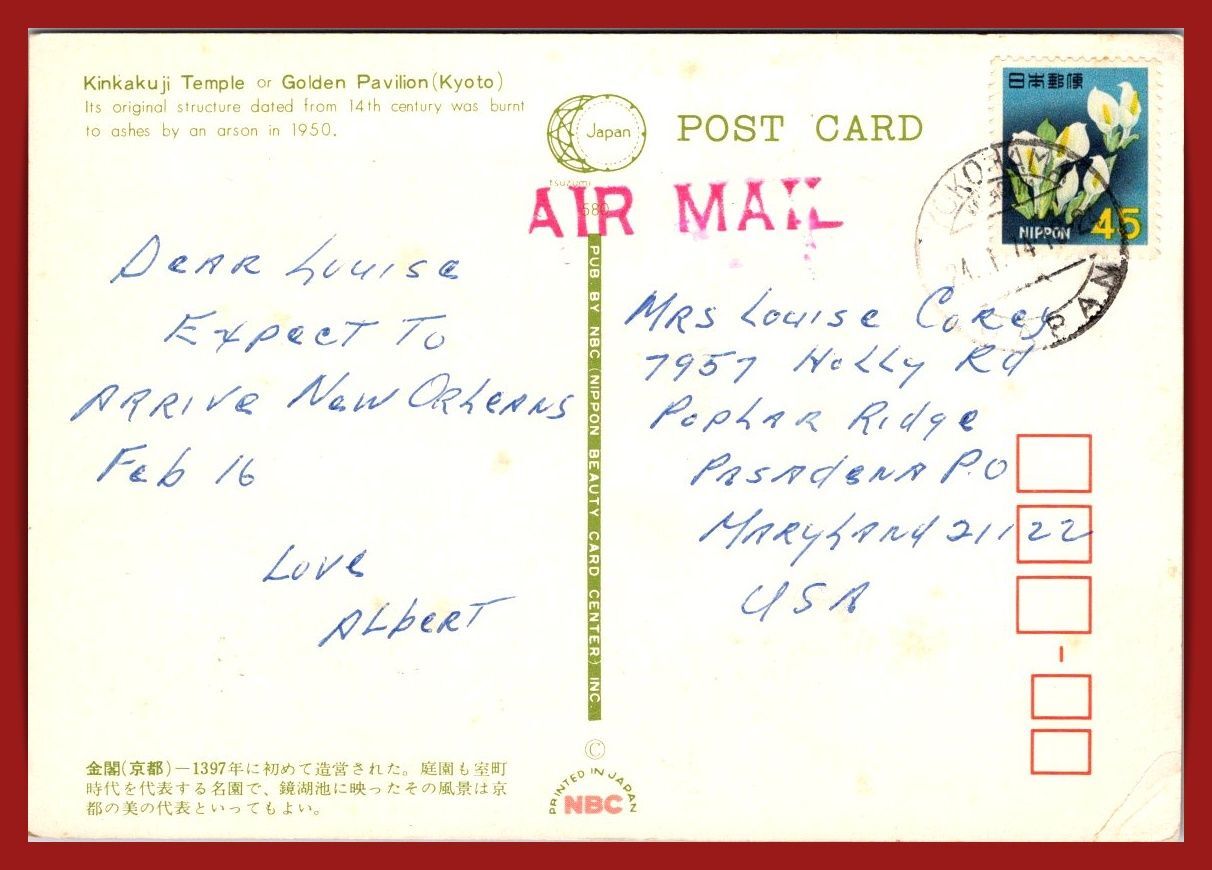 Kinkakuji Temple or Golden Pavilion (Kyoto)
Its original structure dated from 14th century was burnt
to ashes by an arson in 1950.
Japan
tsuzumi
580
POST CARD
AIR MAIL
日本郵便
NIPPON 45
YOKOHAMA
JAPAN
Dear Louise
Expect To
Arrive New Orleans
Feb 16
Love
Albert
PUB BY NBC (NIPPON BEAUTY CARD CENTER) INC.
Mrs Louise Corey
7957 Holly Rd
Poplar Ridge
Pasadena P.O
Maryland 21122
USA
金閣(京都)—1397年に初めて造営された。庭園も室町
時代を代表する名園で、鏡湖池に映ったその風景は京
都の美の代表といってもよい。
©
PRINTED IN JAPAN
NBC